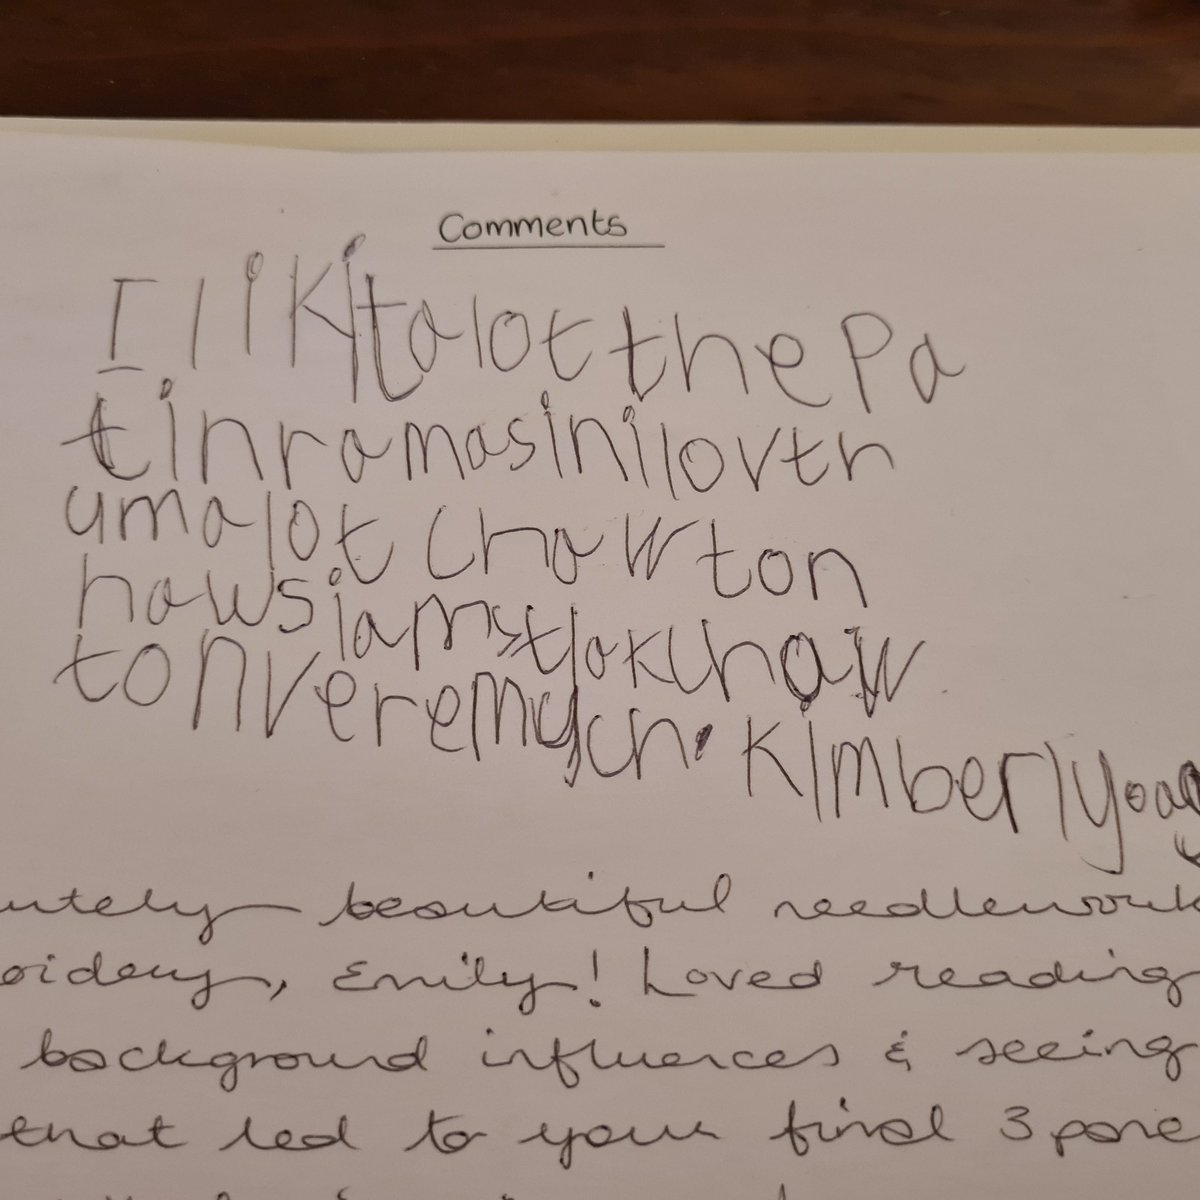 Comments
I l i K i t a lot the Pa
tin r a masin i lov th
um a lot Chawton
haws i a m st lok Chaw
ton vere mych. Kimberly
utely beautiful needlework
oidery, Emily! Loved reading
background influences & seeing
that led to your final 3 pane